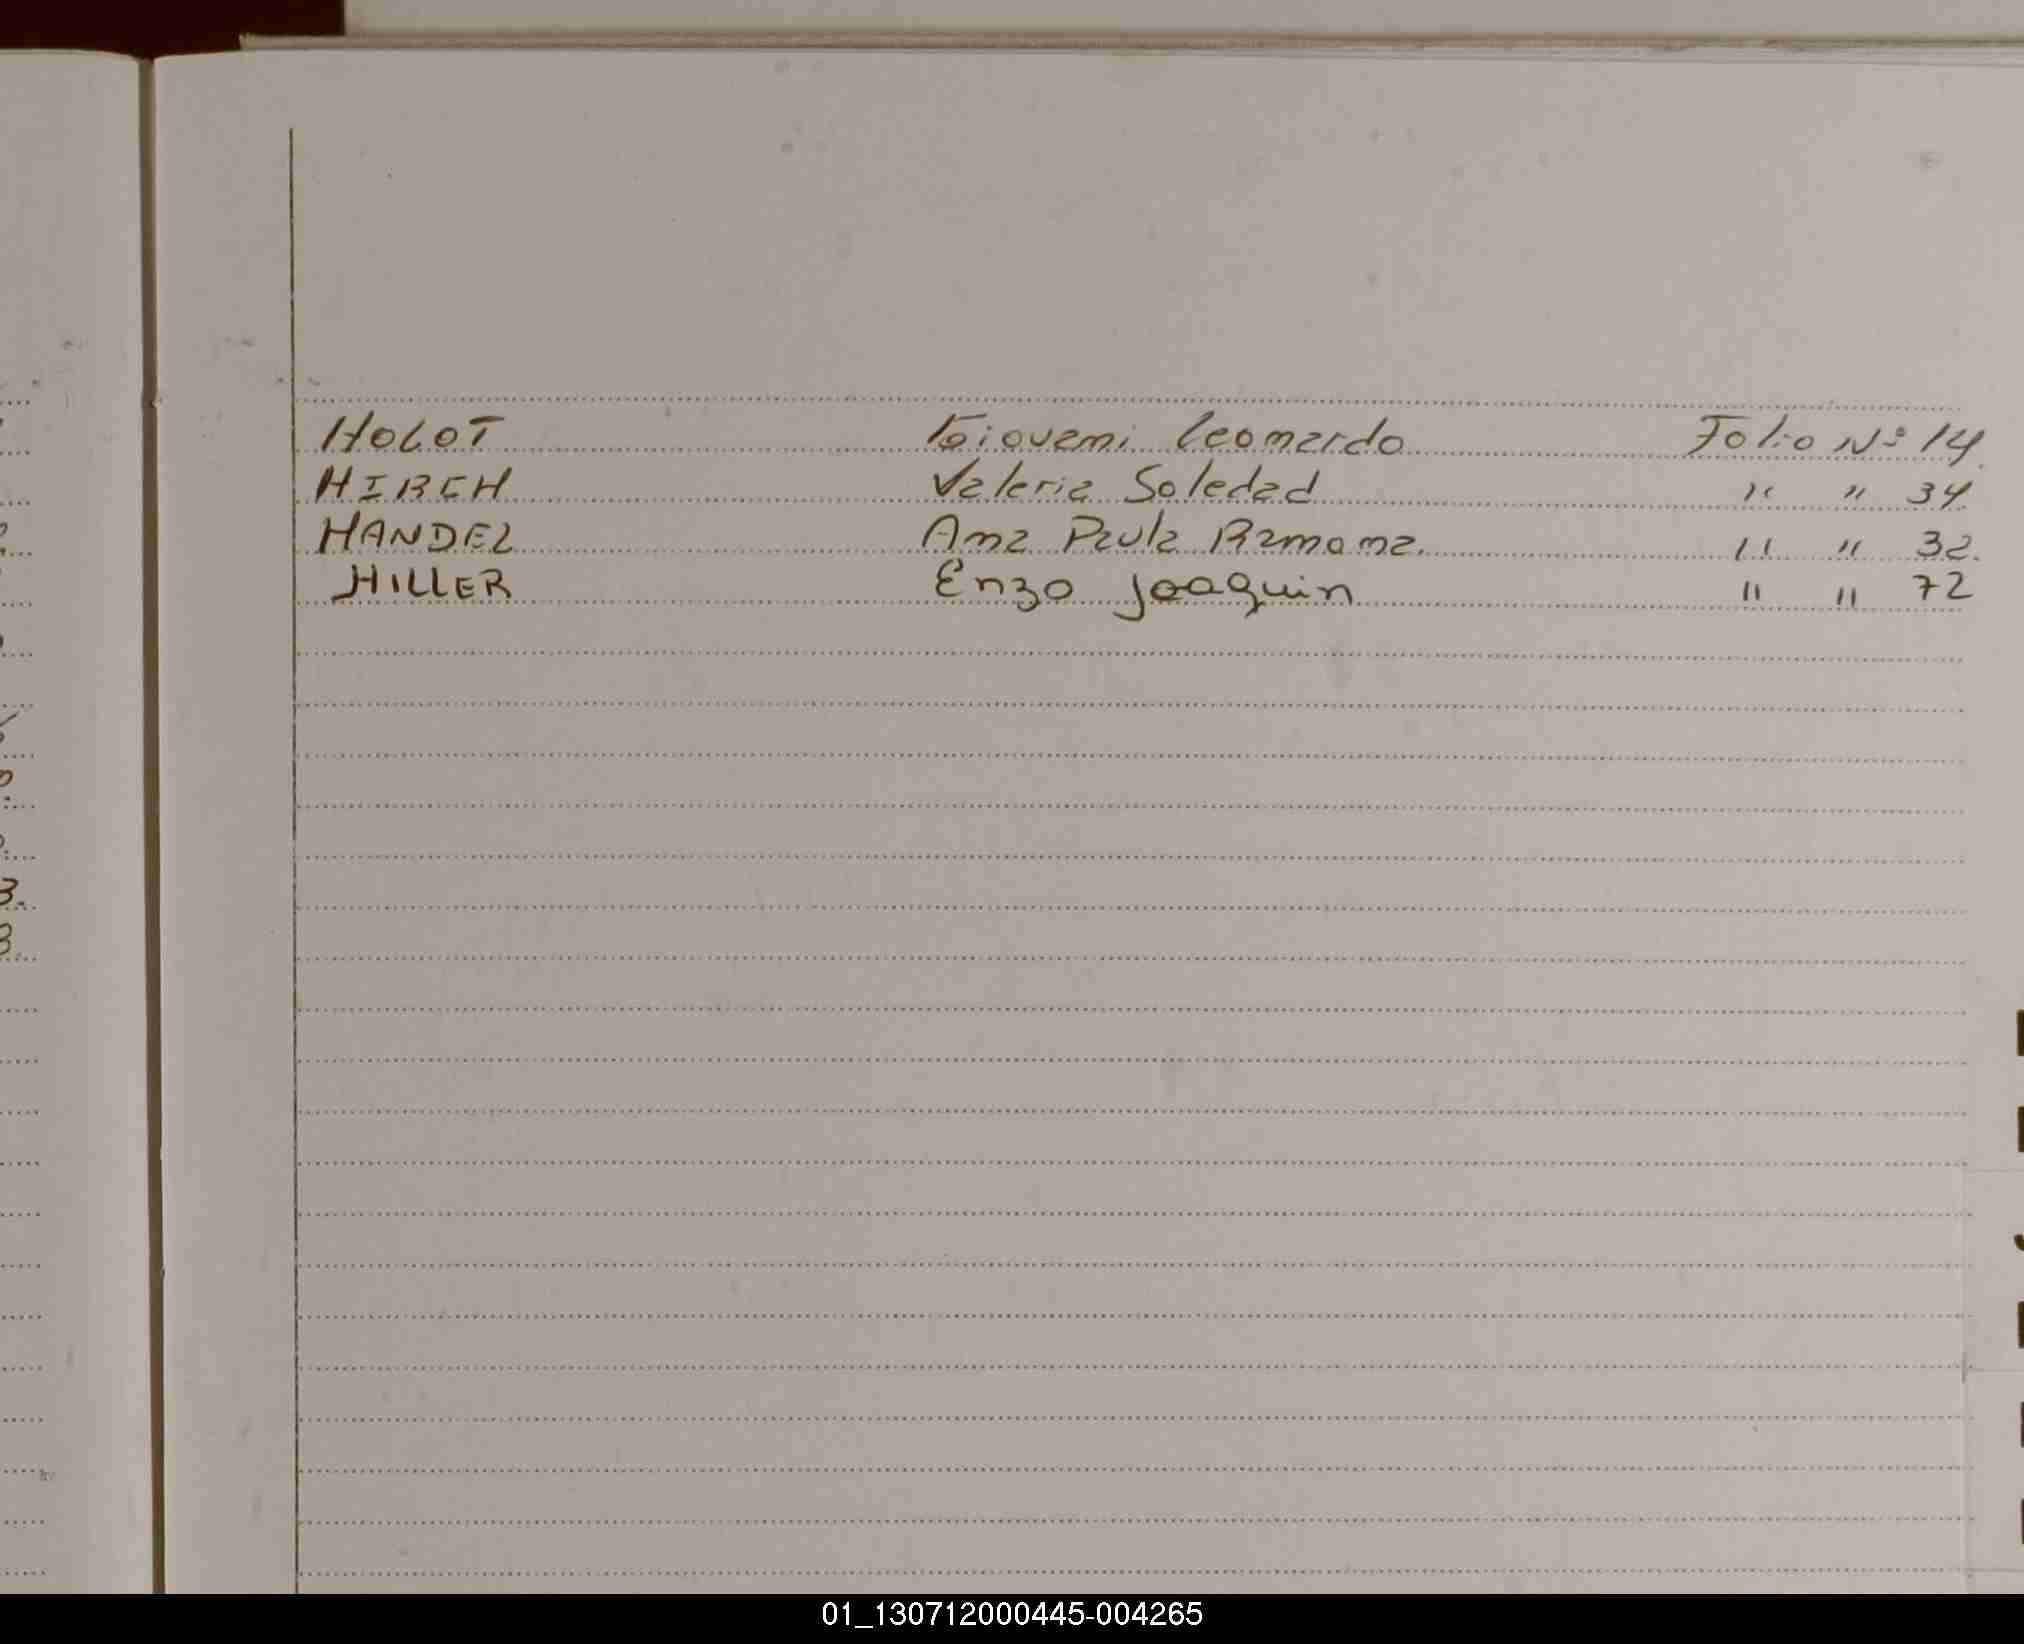 HOLOT Giovani Leonardo Folio Nº 14.
HIRCH Valeria Soledad " " 34.
HANDEL Ana Paula Ramona. " " 32.
HILLER Enzo Joaquin " " 72
01_130712000445-004265